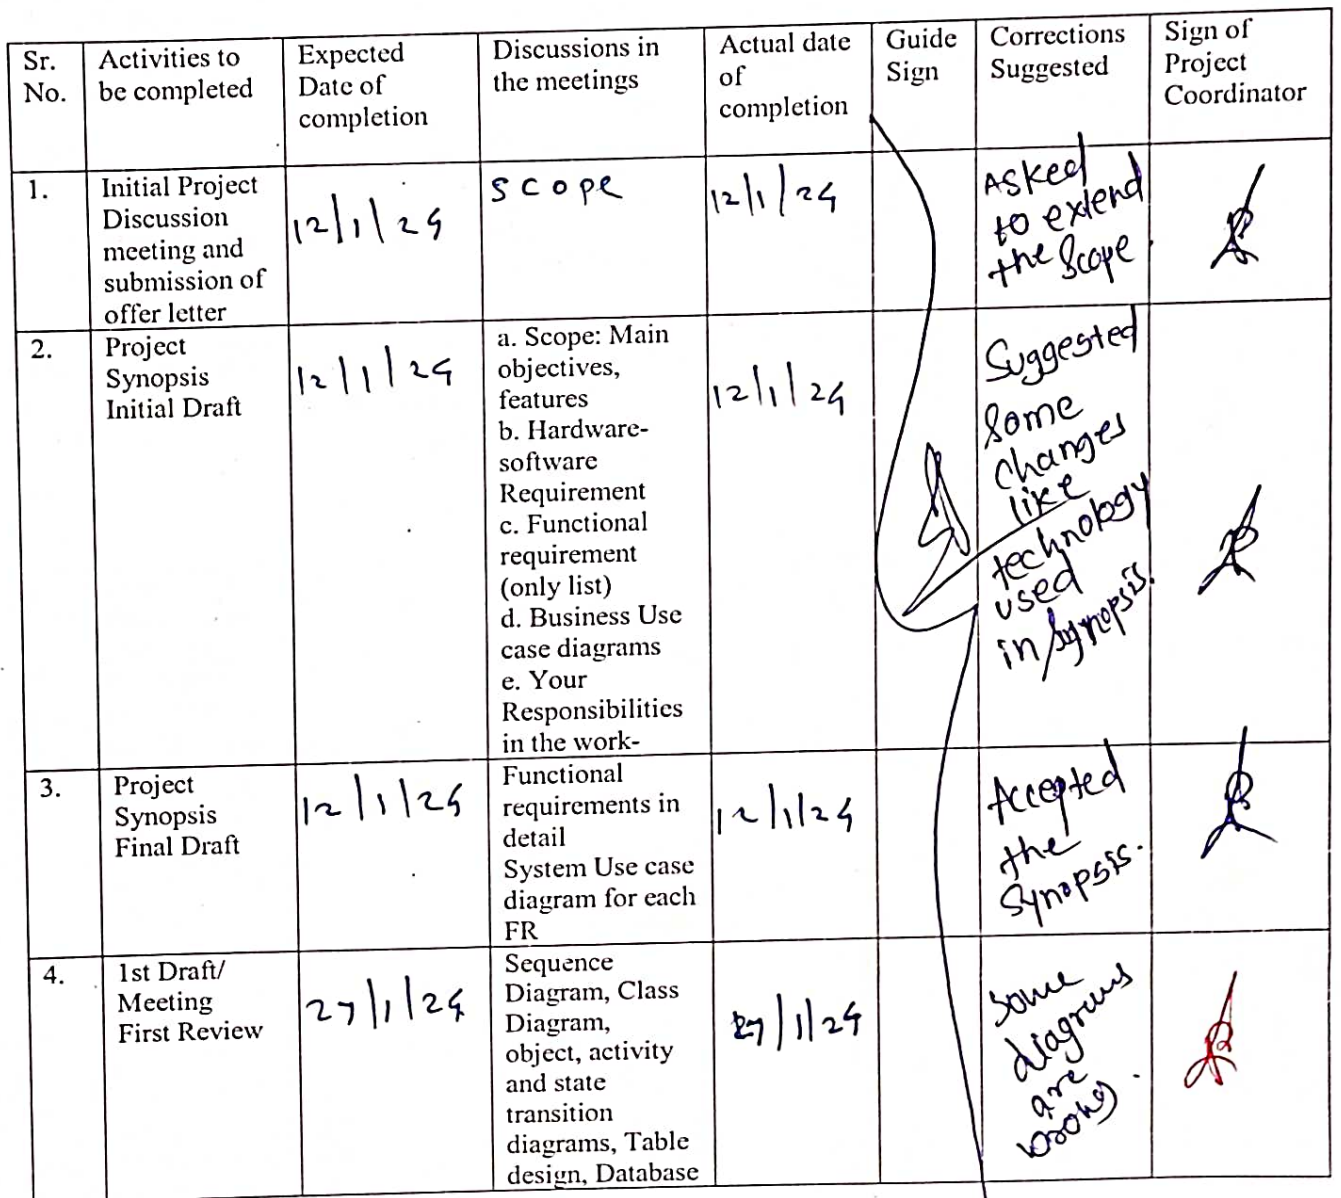 Sr. No.
Activities to be completed
Expected Date of completion
Discussions in the meetings
Actual date of completion
Guide Sign
Corrections Suggested
Sign of Project Coordinator
1.
Initial Project
Discussion
meeting and
submission of
offer letter
12/1/24
scope
12/1/24
Asked
to extend
the Scope.
2.
Project
Synopsis
Initial Draft
12/1/24
a. Scope: Main
objectives,
features
b. Hardware-
software
Requirement
c. Functional
requirement
(only list)
d. Business Use
case diagrams
e. Your
Responsibilities
in the work-
12/1/24
Suggested
some
changes
like
technology
used
in synopsis.
3.
Project
Synopsis
Final Draft
12/1/24
Functional
requirements in
detail
System Use case
diagram for each
FR
12/1/24
Accepted
the
synopsis.
4.
1st Draft/
Meeting
First Review
27/1/24
Sequence
Diagram, Class
Diagram,
object, activity
and state
transition
diagrams, Table
design, Database
27/1/24
some
diagrams
are
wrong.